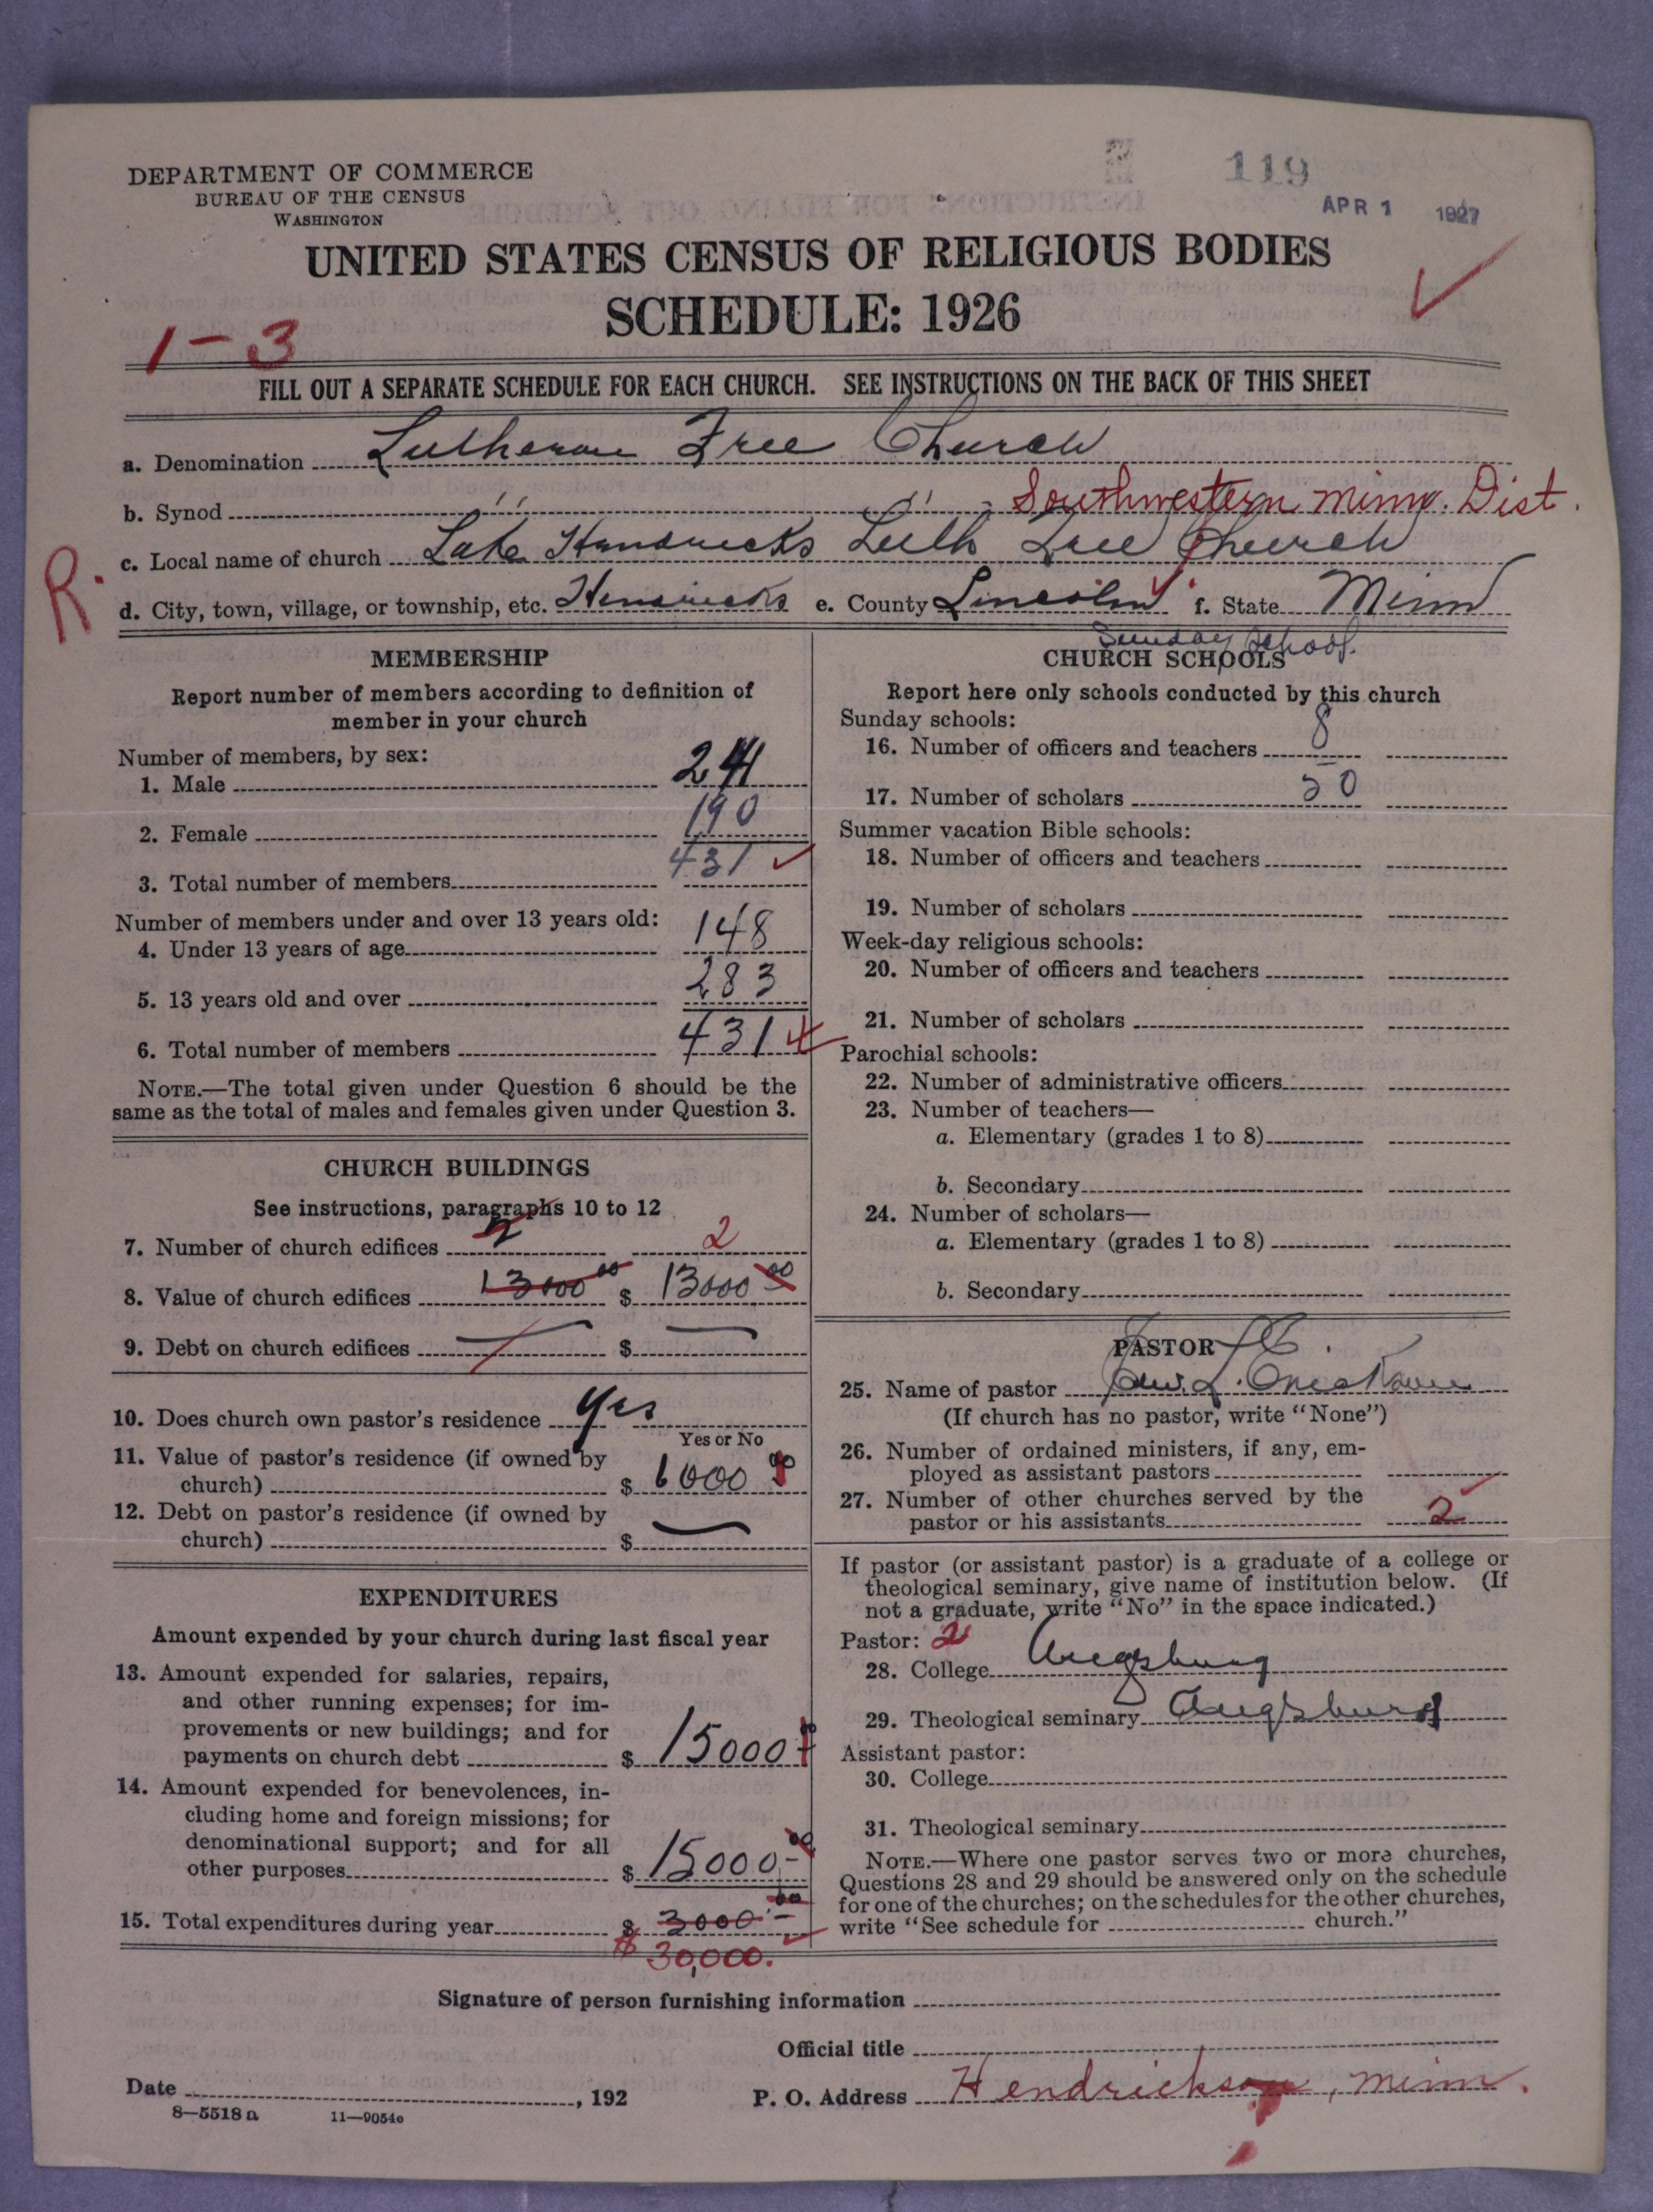 119
APR 1 1927
DEPARTMENT OF COMMERCE
BUREAU OF THE CENSUS
WASHINGTON
UNITED STATES CENSUS OF RELIGIOUS BODIES
SCHEDULE: 1926
1-3
FILL OUT A SEPARATE SCHEDULE FOR EACH CHURCH. SEE INSTRUCTIONS ON THE BACK OF THIS SHEET
a. Denomination Lutheran Free Church
b. Synod " " Southwestern Minn. Dist.
R.
c. Local name of church Lake Hendricks Luth Free Church
d. City, town, village, or township, etc. Hendricks e. County Lincoln f. State Minn
MEMBERSHIP
Report number of members according to definition of
member in your church
Number of members, by sex:
1. Male 241
2. Female 190
3. Total number of members 431
Number of members under and over 13 years old:
4. Under 13 years of age 148
5. 13 years old and over 283
6. Total number of members 431
NOTE.—The total given under Question 6 should be the
same as the total of males and females given under Question 3.
CHURCH BUILDINGS
See instructions, paragraphs 10 to 12
7. Number of church edifices 2 2
8. Value of church edifices 13000 00 $ 13000 00
9. Debt on church edifices — $ —
10. Does church own pastor's residence Yes
Yes or No
11. Value of pastor's residence (if owned by
church) $ 6000 00
12. Debt on pastor's residence (if owned by
church) $ —
EXPENDITURES
Amount expended by your church during last fiscal year
13. Amount expended for salaries, repairs,
and other running expenses; for im-
provements or new buildings; and for
payments on church debt $ 15000
14. Amount expended for benevolences, in-
cluding home and foreign missions; for
denominational support; and for all
other purposes $ 15000.-
15. Total expenditures during year $ 3000.-
$ 30,000.
Sunday School.
CHURCH SCHOOLS
Report here only schools conducted by this church
Sunday schools:
16. Number of officers and teachers 8
17. Number of scholars 50
Summer vacation Bible schools:
18. Number of officers and teachers
19. Number of scholars
Week-day religious schools:
20. Number of officers and teachers
21. Number of scholars
Parochial schools:
22. Number of administrative officers
23. Number of teachers—
a. Elementary (grades 1 to 8)
b. Secondary
24. Number of scholars—
a. Elementary (grades 1 to 8)
b. Secondary
PASTOR
25. Name of pastor
(If church has no pastor, write "None")
26. Number of ordained ministers, if any, em-
ployed as assistant pastors
27. Number of other churches served by the
pastor or his assistants 2
If pastor (or assistant pastor) is a graduate of a college or
theological seminary, give name of institution below. (If
not a graduate, write "No" in the space indicated.)
Pastor: 2
28. College Augsburg
29. Theological seminary Augsburg
Assistant pastor:
30. College
31. Theological seminary
NOTE.—Where one pastor serves two or more churches,
Questions 28 and 29 should be answered only on the schedule
for one of the churches; on the schedules for the other churches,
write "See schedule for church."
Signature of person furnishing information
Official title
Date , 192 P. O. Address Hendrickson, Minn.
8—5518 a 11—9054o